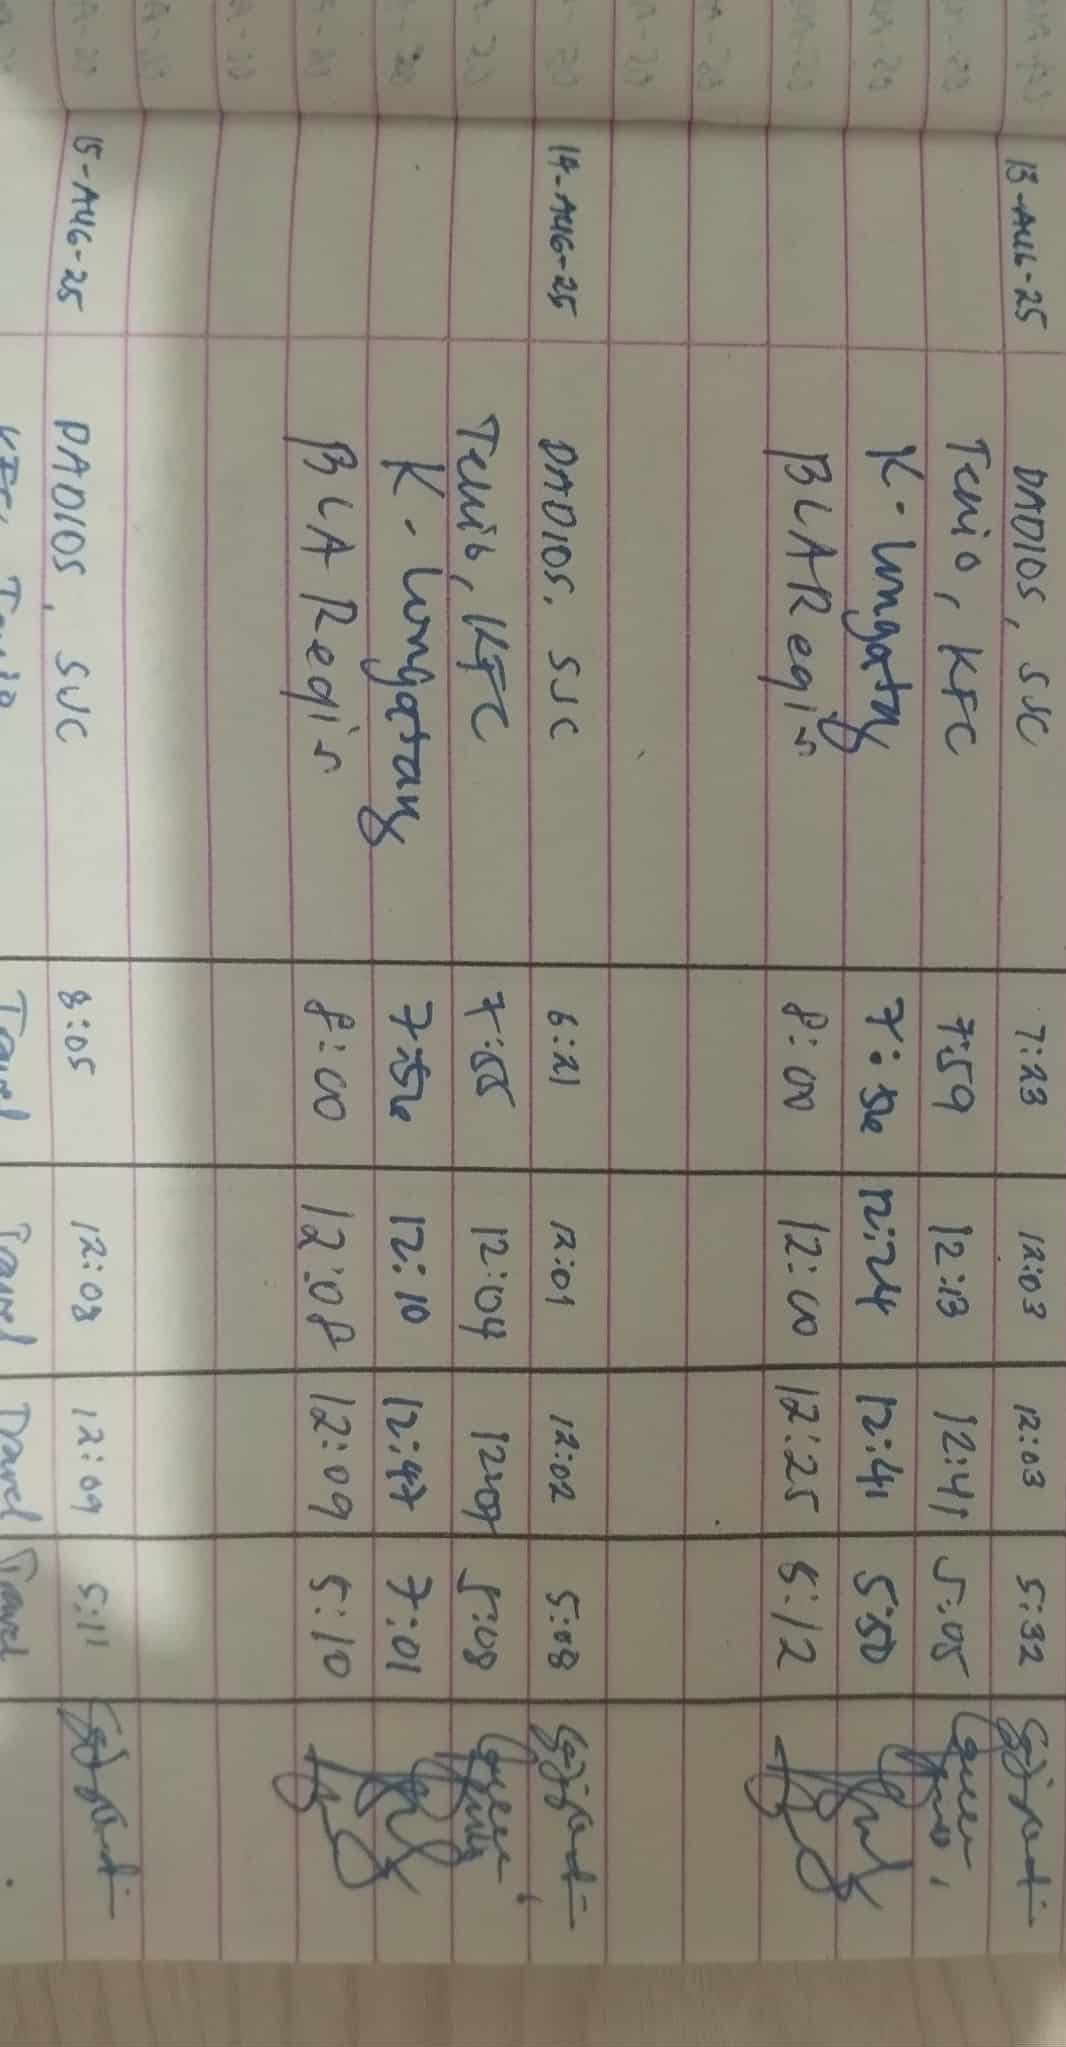 13-AUG-25 DADIOS, SJC 7:23 12:03 12:03 5:32
Tenio, KFC 7:59 12:13 12:41 5:05
K. 7:56 12:24 12:41 5:50
BLA Regis 8:00 12:00 12:25 5:12
14-AUG-25 DADIOS, SJC 6:21 12:01 12:02 5:08
Tenio, KFC 7:55 12:04 12:09 5:08
K. 7:56 12:10 12:47 7:01
BLA Regis 8:00 12:08 12:09 5:10
15-AUG-25 DADIOS, SJC 8:05 12:08 12:09 5:11
KFC, Tenio Travel Travel Travel Travel